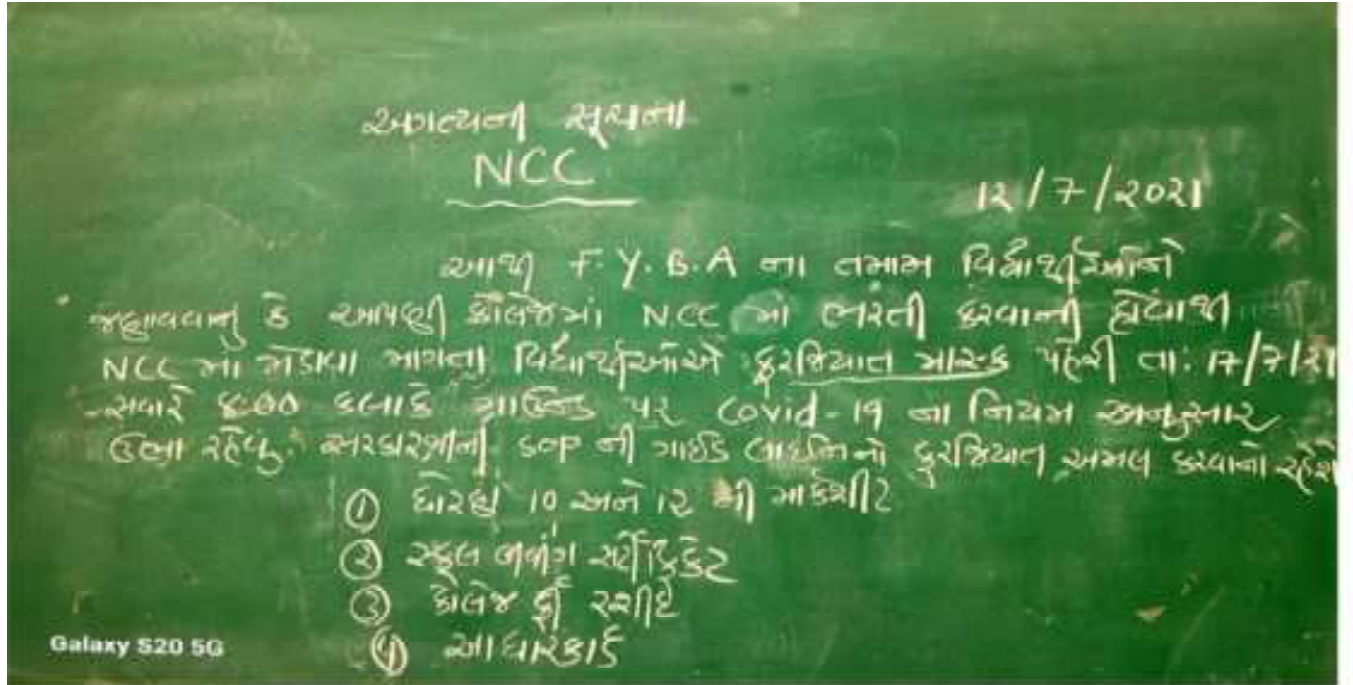 અગત્યની સૂચના
NCC
૧૨/7/૨૦૨૧
આથી F.Y.B.A ના તમામ વિદ્યાર્થીઓને
જણાવવાનું કે આપણી કોલેજમાં NCC માં ભરતી કરવાની હોવાથી
NCC માં જોડાવા માગતા વિદ્યાર્થીઓએ ફરજિયાત માસ્ક પહેરી તા: ૧૭/7/૨૧
સવારે ૪:00 કલાકે ગ્રાઉન્ડ પર Covid-19 ના નિયમ અનુસાર
ઉભા રહેવું. સરકારશ્રીની SOP ની ગાઈડ લાઈનનો ફરજિયાત અમલ કરવાનો રહેશે
① ધોરણ 10 અને ૧૨ ની માર્કશીટ
② સ્કુલ લીવીંગ સર્ટીફિકેટ
③ કોલેજ ફી રશીદ
④ આધારકાર્ડ
Galaxy S20 5G